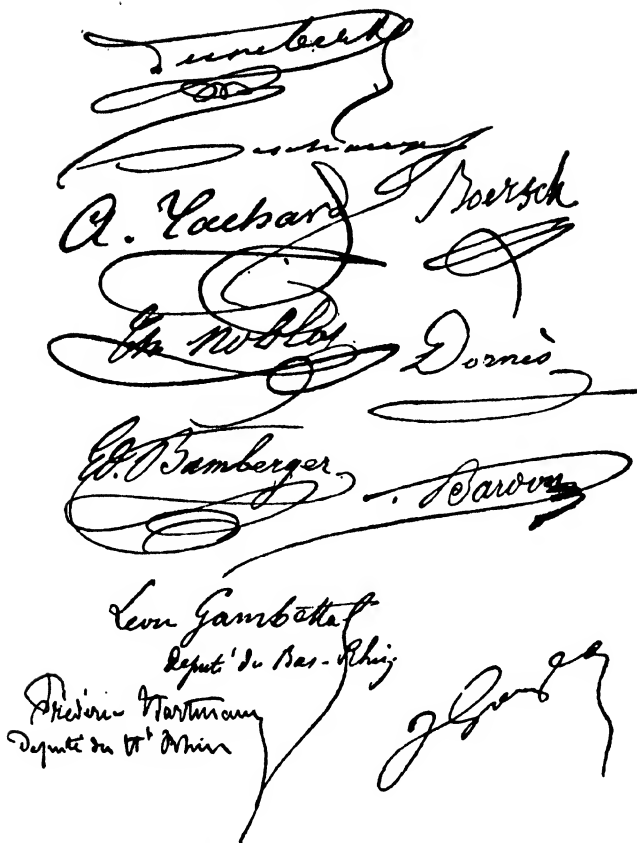 A. Tachard
Boersch
Ch Noblot
Dornès
Ed. Bamberger
Bardon
Léon Gambetta
député du Bas-Rhin
Frédéric Hartmann
Député du Ht Rhin